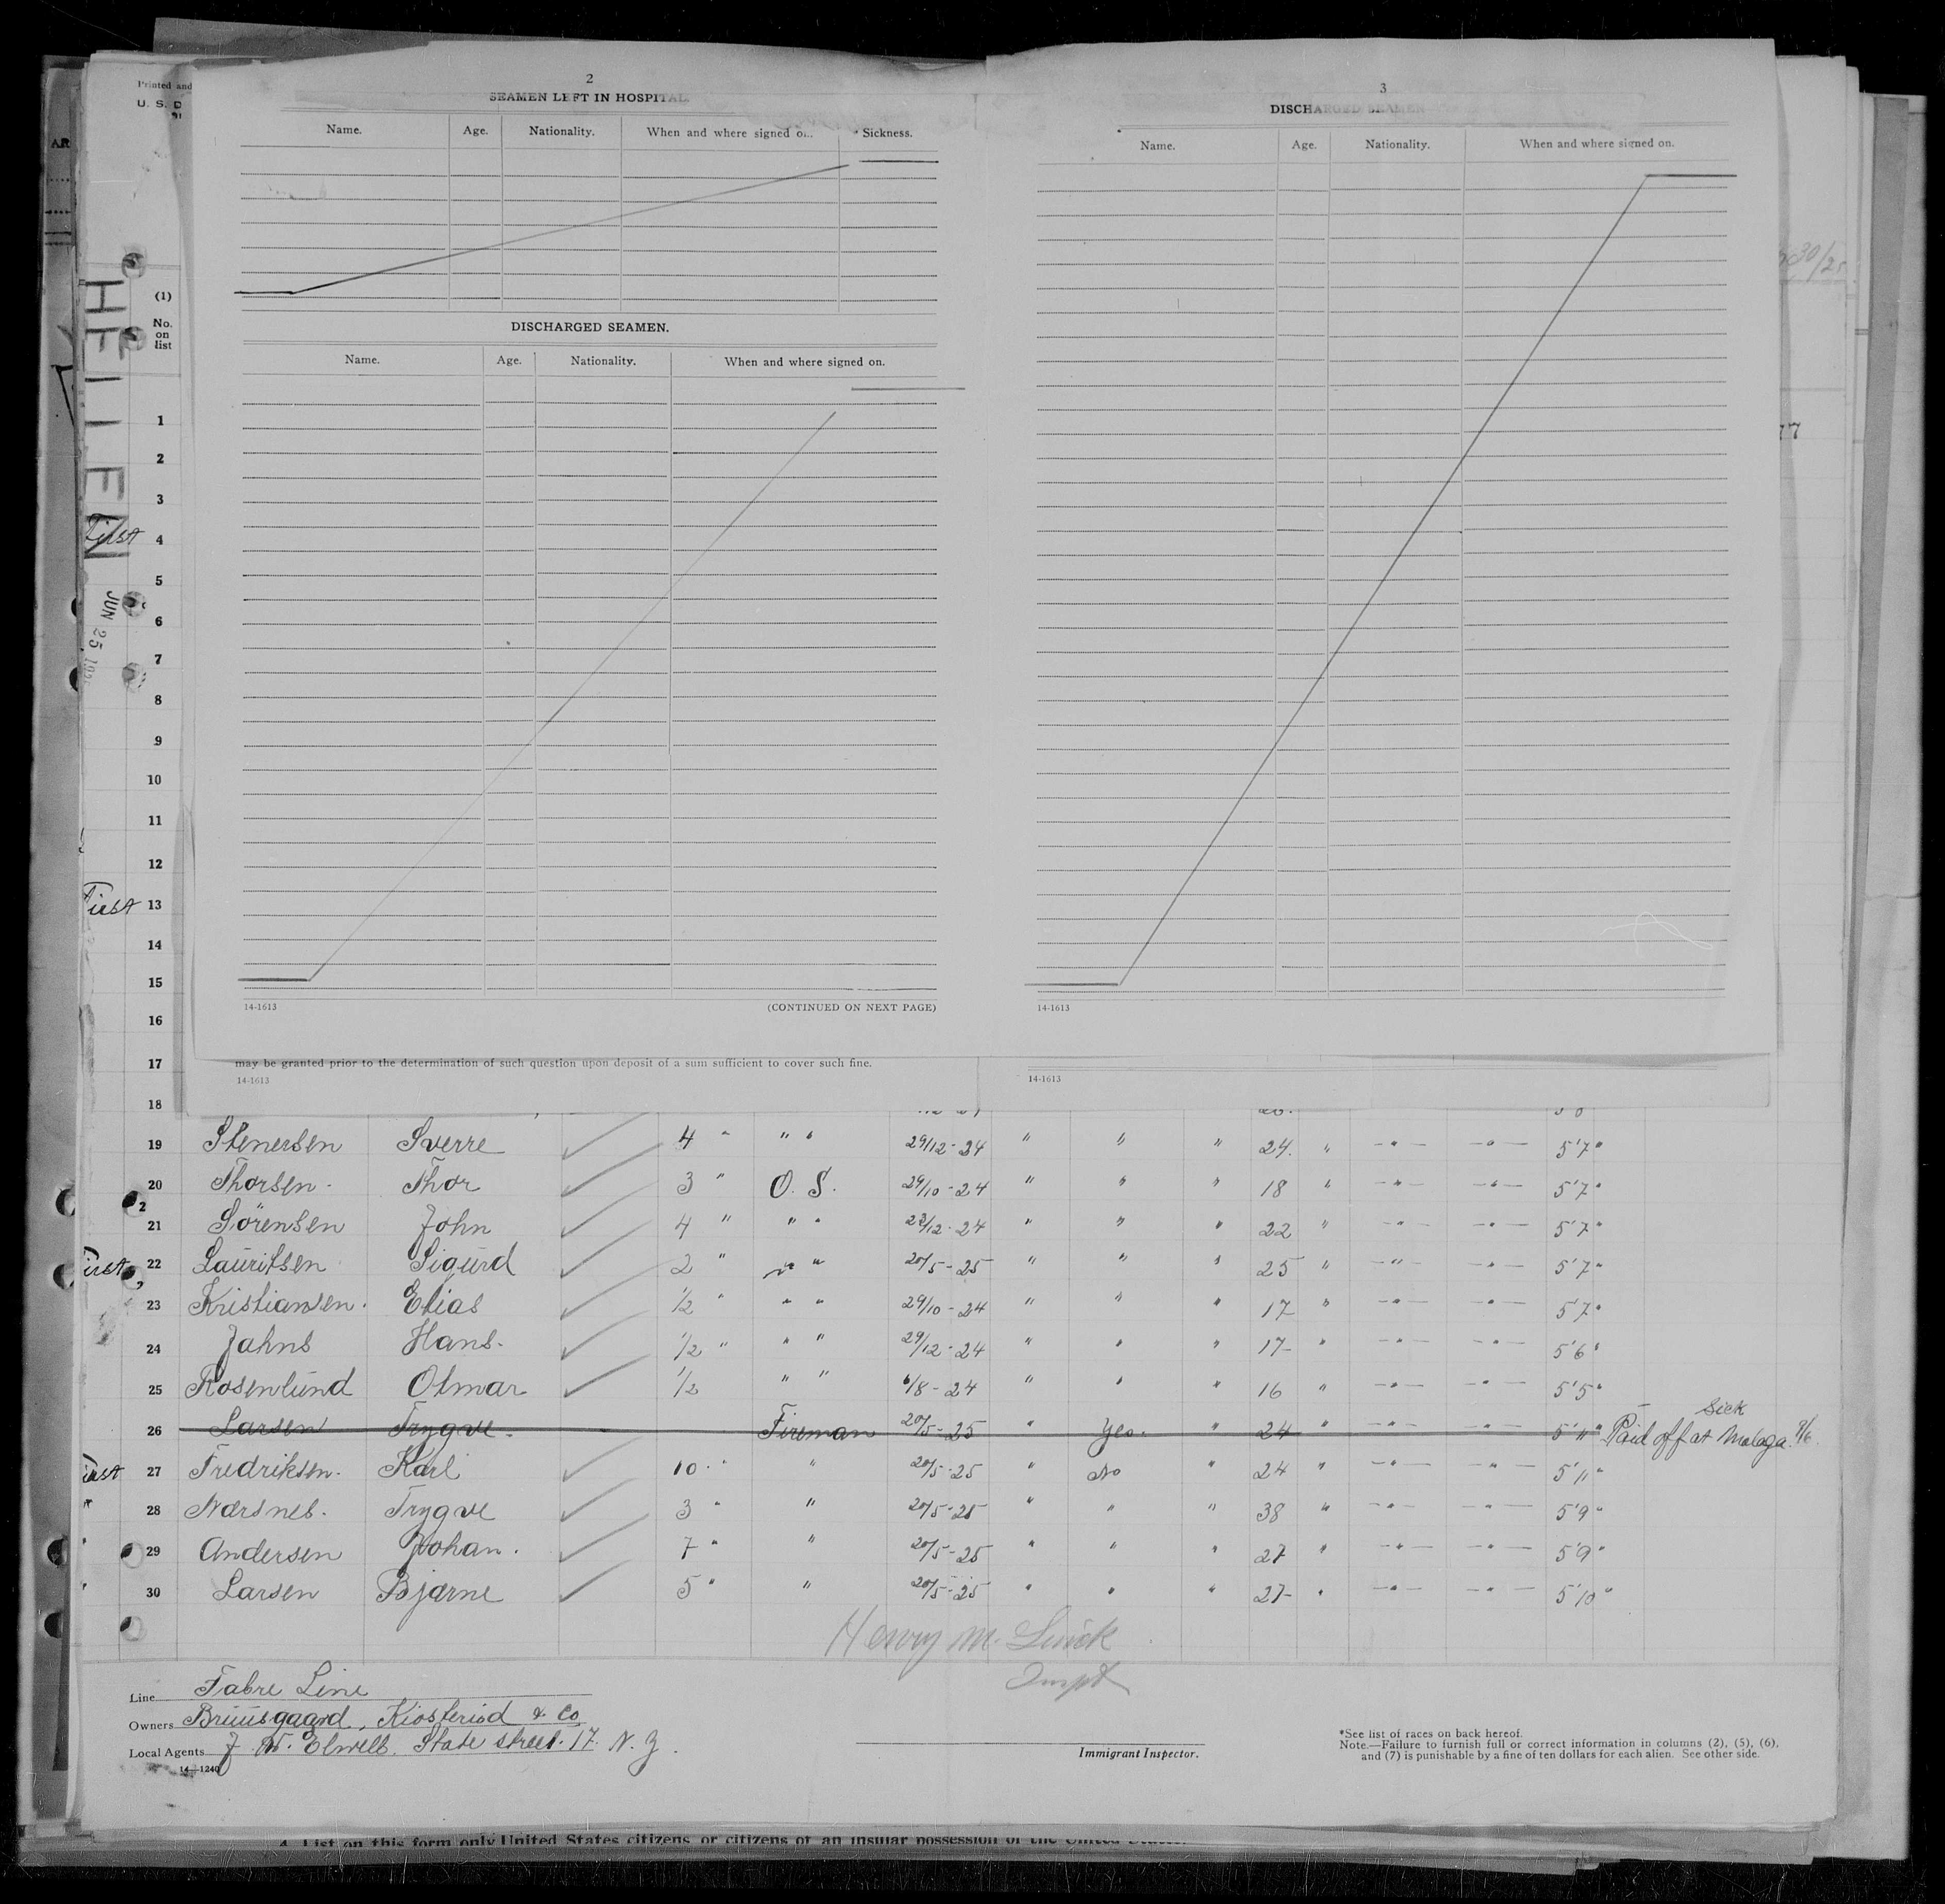 Printed and
U. S. D
AR
2
SEAMEN LEFT IN HOSPITAL.
Name. Age. Nationality. When and where signed o Sickness.
DISCHARGED SEAMEN.
Name. Age. Nationality. When and where signed on.
14-1613 (CONTINUED ON NEXT PAGE)
3
DISCHARGED SEAMEN
Name. Age. Nationality. When and where signed on.
14-1613
30/25
77
HELLEN
JUN 25
(1)
No.
on
list
1
2
3
First 4
5
6
7
8
9
10
11
12
First 13
14
15
16
17
18
may be granted prior to the determination of such question upon deposit of a sum sufficient to cover such fine.
14-1613
14-1613
19 Stenersen Sverre 4 " " " 29/12-24 " " " 24. " -"- -"- 5'7"
20 Thorsen Thor 3 " O. S. 29/10-24 " " " 18 " -"- -"- 5'7"
21 Sörensen John 4 " " " 23/12-24 " " " 22 " -"- -"- 5'7"
First 22 Lauritsen Sigurd 2 " " " 20/5-25 " " " 25 " -"- -"- 5'7"
23 Kristiansen. Elias 1/2 " " " 29/10-24 " " " 17 " -"- -"- 5'7"
24 Jahns Hans. 1/2 " " " 29/12-24 " " " 17 " -"- -"- 5'6"
25 Rosenlund Otmar 1/2 " " 6/8-24 " " " 16 " -"- -"- 5'5"
26 Larsen Trygve. Fireman 20/5-25 " Yes. " 24 " -"- -"- 5'11" Sick Paid off at Malaga. 9/6
First 27 Fredriksen. Karl 10 " " 20/5-25 " No " 24 " -"- -"- 5'11"
" 28 Nærsnes. Trygve 3 " " 20/5-25 " " " 38 " -"- -"- 5'9"
" 29 Andersen Johan. 7 " " 20/5-25 " " " 27 " -"- -"- 5'9"
" 30 Larsen Bjarne 5 " " 20/5-25 " " " 27 " -"- -"- 5'10"
Henry M.
Inspt
Line Fabre Line
Owners Bruusgaard, Kiosteriod & Co
Local Agents J. W. Elwell. State street. 17. N. Y.
14-1240
Immigrant Inspector.
*See list of races on back hereof.
Note.—Failure to furnish full or correct information in columns (2), (5), (6),
and (7) is punishable by a fine of ten dollars for each alien. See other side.
4. List on this form only United States citizens or citizens of an insular possession of the United States